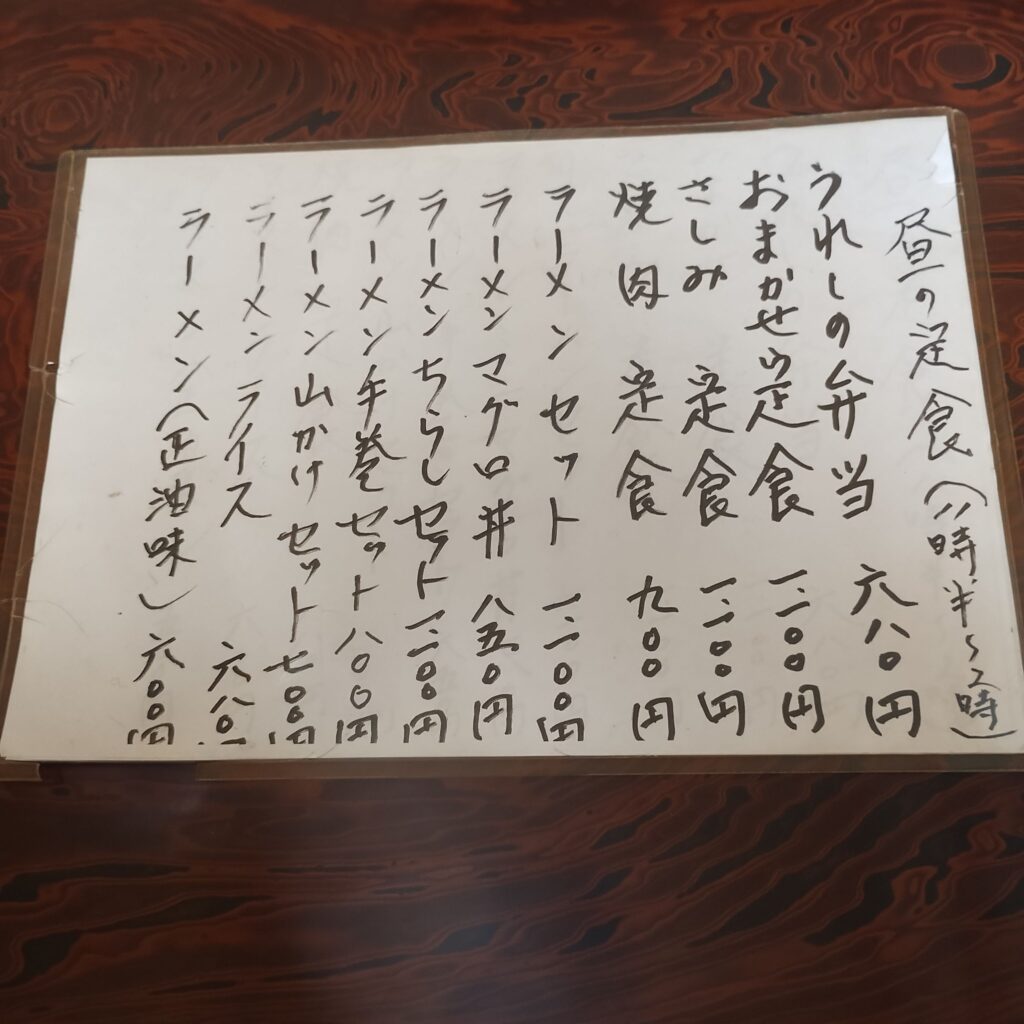 昼の定食(11時半~2時)
うれしの弁当 六八〇円
おまかせ定食 一、一〇〇円
さしみ 定食 一、一〇〇円
焼肉 定食 九〇〇円
ラーメン セット 一、一〇〇円
ラーメン マグロ丼 八五〇円
ラーメン ちらしセット 一、一〇〇円
ラーメン 手巻セット 八〇〇円
ラーメン 山かけセット 七〇〇円
ラーメン ライス 六八〇円
ラーメン(正油味) 六〇〇円